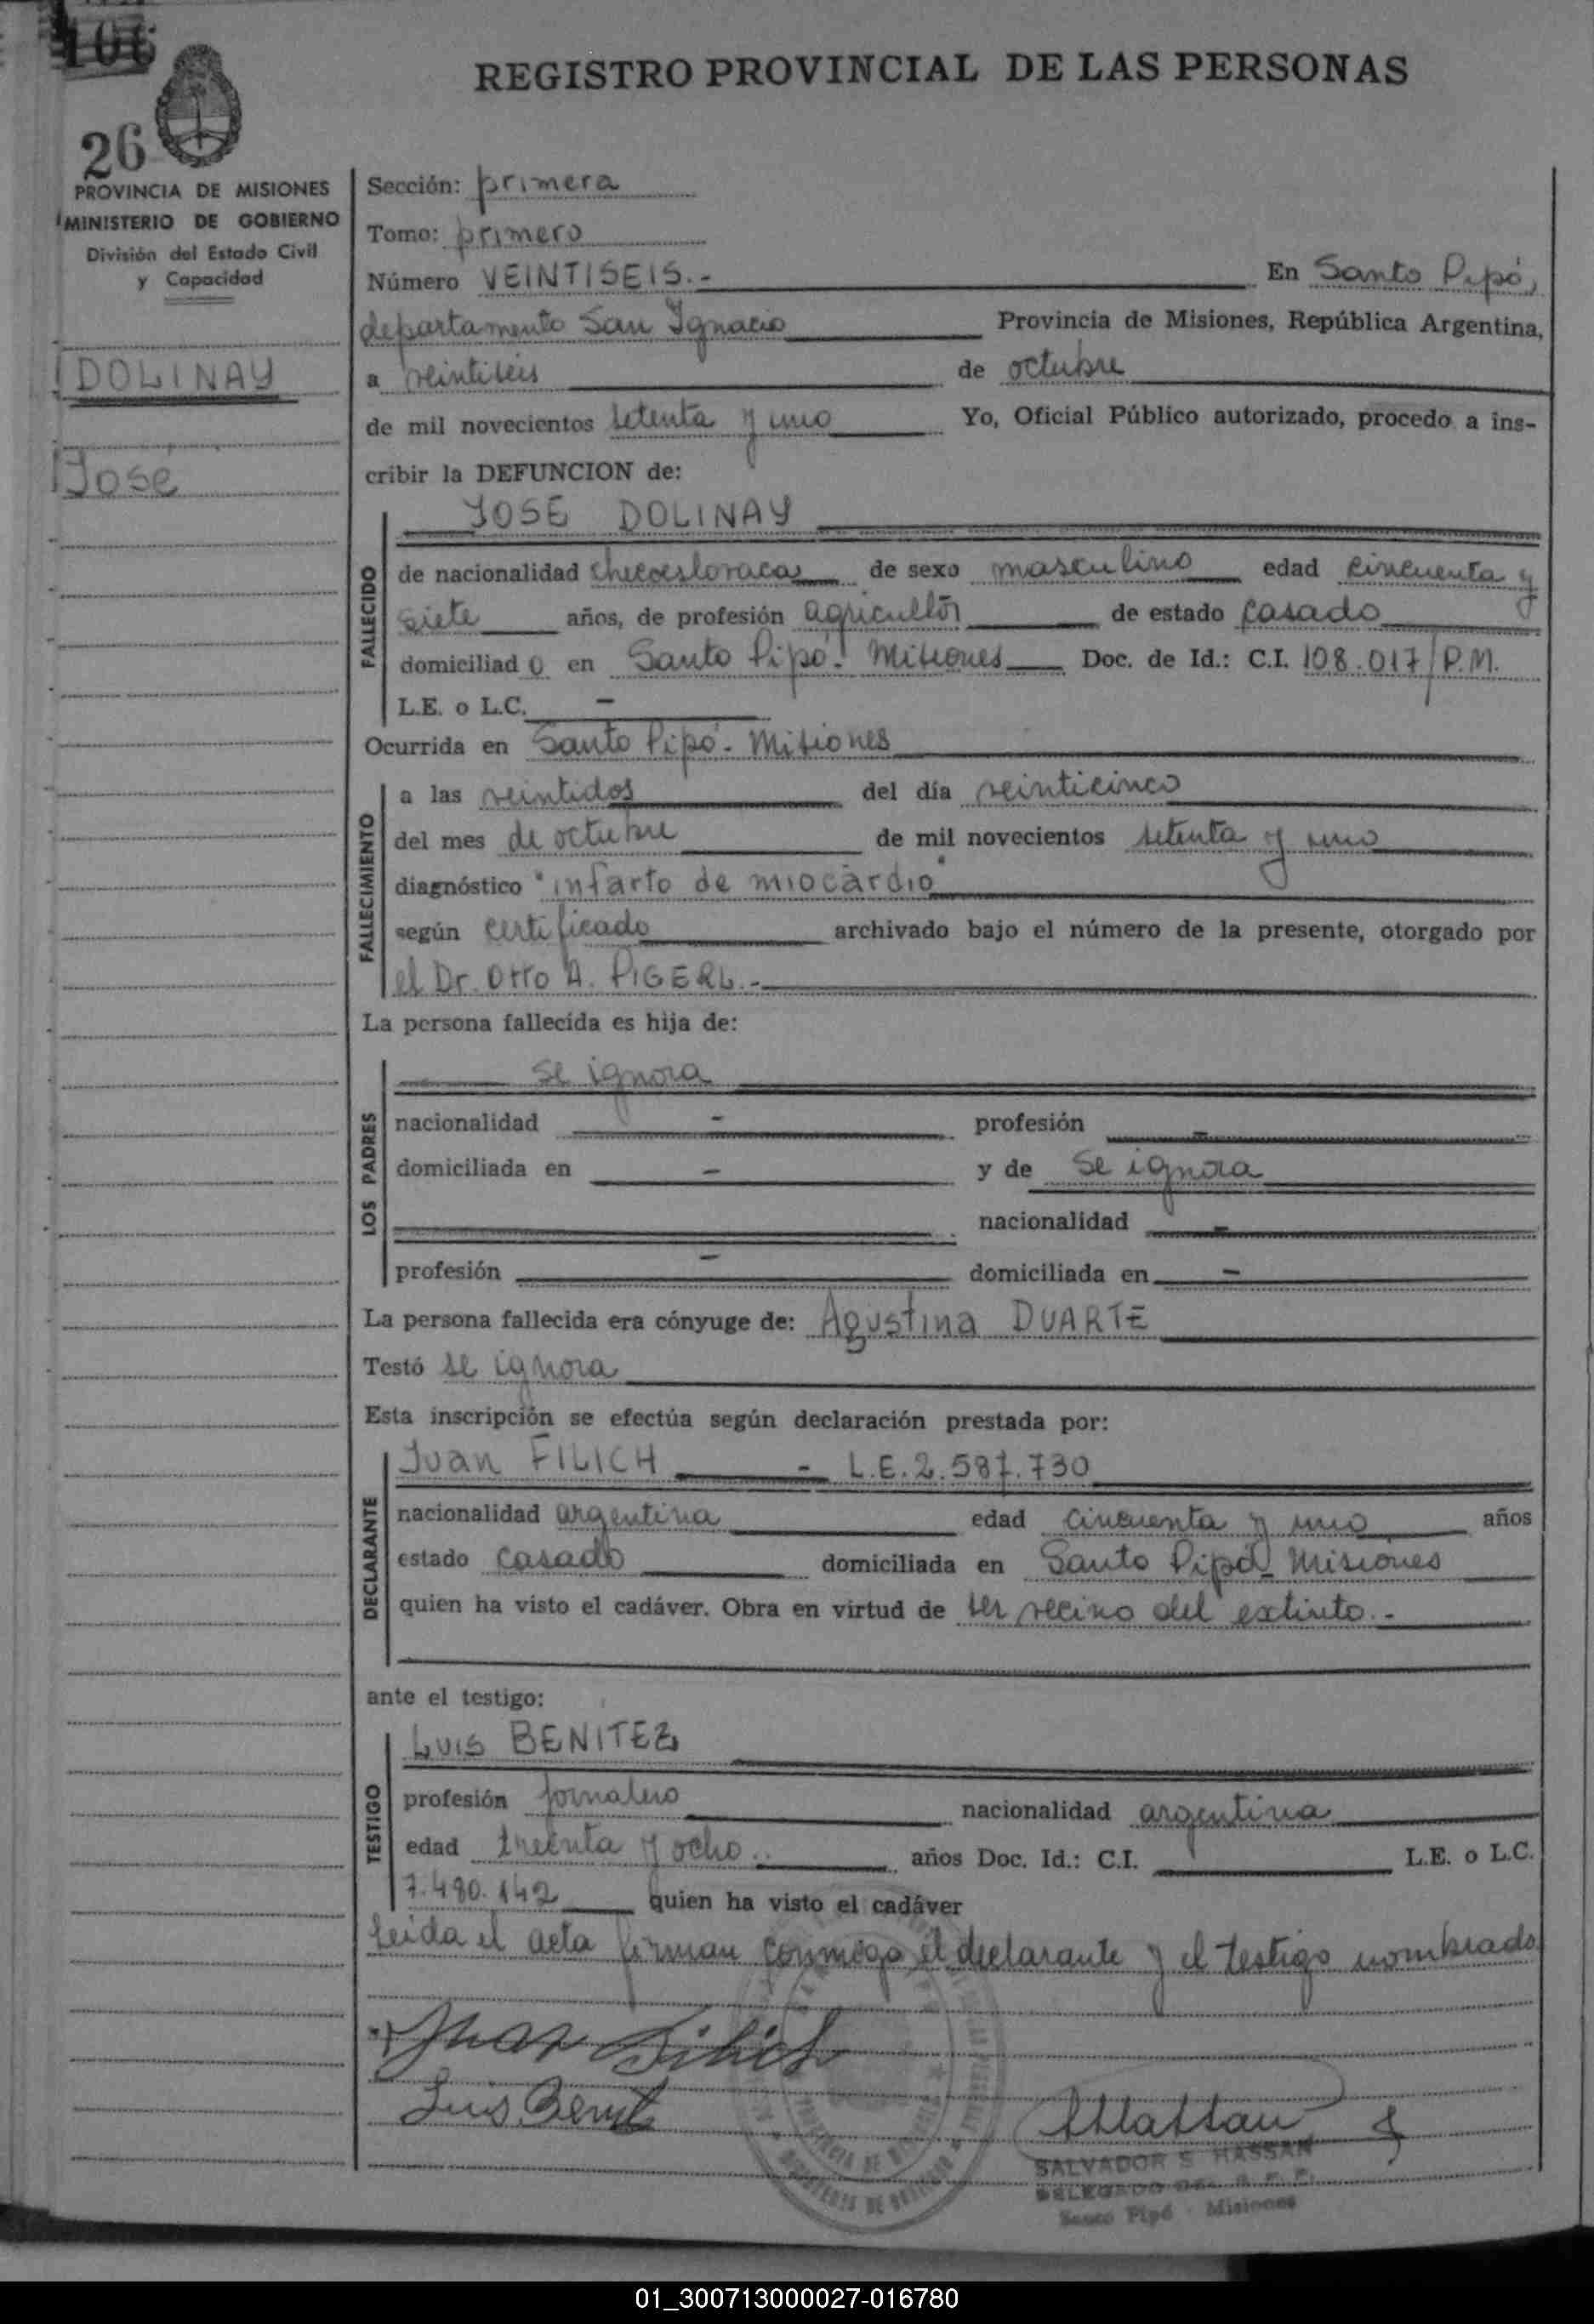 106
REGISTRO PROVINCIAL DE LAS PERSONAS
26
PROVINCIA DE MISIONES
MINISTERIO DE GOBIERNO
División del Estado Civil
y Capacidad
DOLINAY
Jose
Sección: primera
Tomo: primero
Número VEINTISEIS.- En Santo Pipó,
departamento San Ignacio Provincia de Misiones, República Argentina,
a veintiseis de octubre
de mil novecientos setenta y uno Yo, Oficial Público autorizado, procedo a ins-
cribir la DEFUNCION de:
JOSE DOLINAY
FALLECIDO
de nacionalidad checoeslovaca de sexo masculino edad cincuenta y
siete años, de profesión agricultor de estado casado
domiciliado en Santo Pipó. Misiones Doc. de Id.: C.I. 108.017/P.M.
L.E. o L.C. -
Ocurrida en Santo Pipó. Misiones
FALLECIMIENTO
a las veintidos del día veinticinco
del mes de octubre de mil novecientos setenta y uno
diagnóstico "infarto de miocardio"
según certificado archivado bajo el número de la presente, otorgado por
el Dr. Otto A. PIGERL.-
La persona fallecida es hija de:
LOS PADRES
se ignora
nacionalidad - profesión -
domiciliada en - y de se ignora
nacionalidad -
profesión - domiciliada en -
La persona fallecida era cónyuge de: Agustina DUARTE
Testó se ignora
Esta inscripción se efectúa según declaración prestada por:
DECLARANTE
Juan FILICH - L.E. 2.587.730
nacionalidad argentina edad cincuenta y uno años
estado casado domiciliada en Santo Pipó- Misiones
quien ha visto el cadáver. Obra en virtud de ser vecino del extinto.-
ante el testigo:
TESTIGO
Luis BENITEZ
profesión jornalero nacionalidad argentina
edad treinta y ocho.. años Doc. Id.: C.I. L.E. o L.C.
7.480.142 quien ha visto el cadáver
Leida el acta firman conmigo el declarante y el testigo nombrado
Juan Filich
Luis Benit
SALVADOR S. HASSAN
DELEGADO DEL R. P. P.
Santo Pipó - Misiones
PROVINCIA DE MISIONES
MINISTERIO DE GOBIERNO
01_300713000027-016780